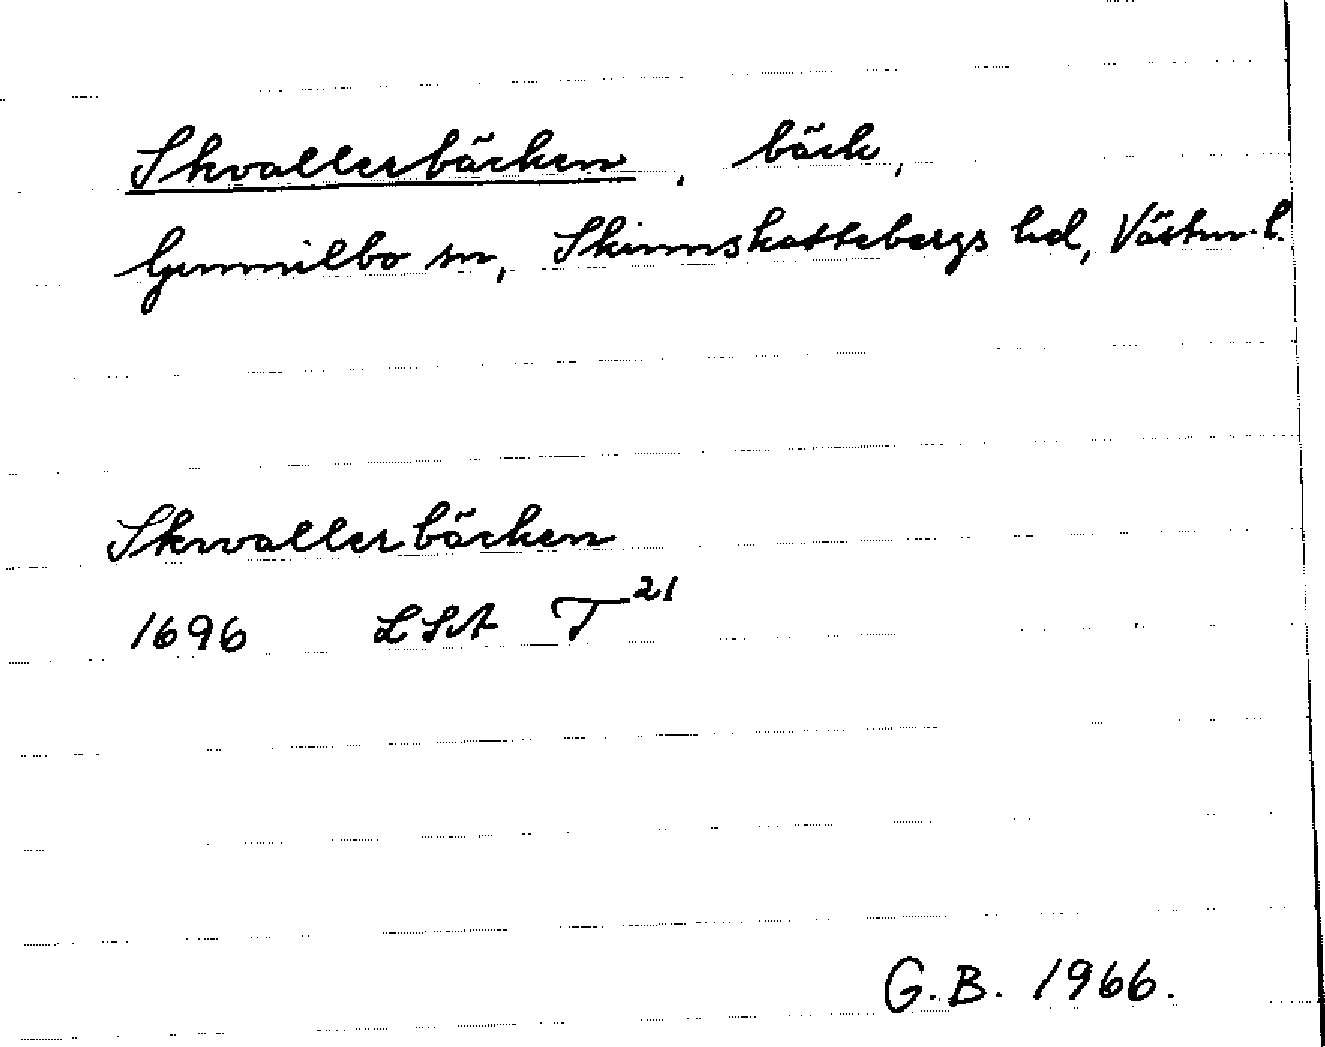 Skvallerbäcken, bäck,
Gunnilbo sn, Skinnskattebergs hd, Västm. l.
Skwallerbäcken
1696 LSA T 21
G.B. 1966.